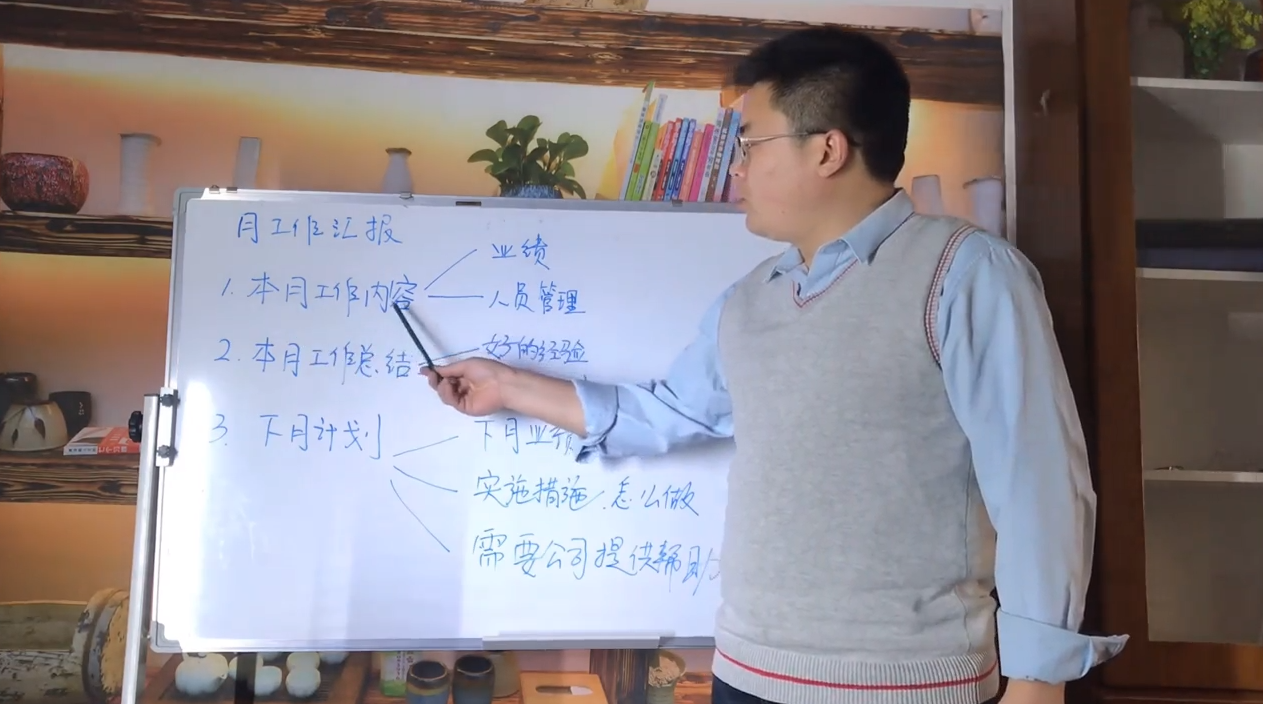 月工作汇报
1. 本月工作内容
业绩
人员管理
2. 本月工作总结
好的经验
3. 下月计划
下月业绩
实施措施.怎么做
需要公司提供帮助